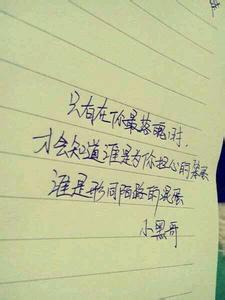 只有在你最落魄时,
才会知道谁是为你担心的笨蛋
谁是形同陌路的混蛋
小黑哥